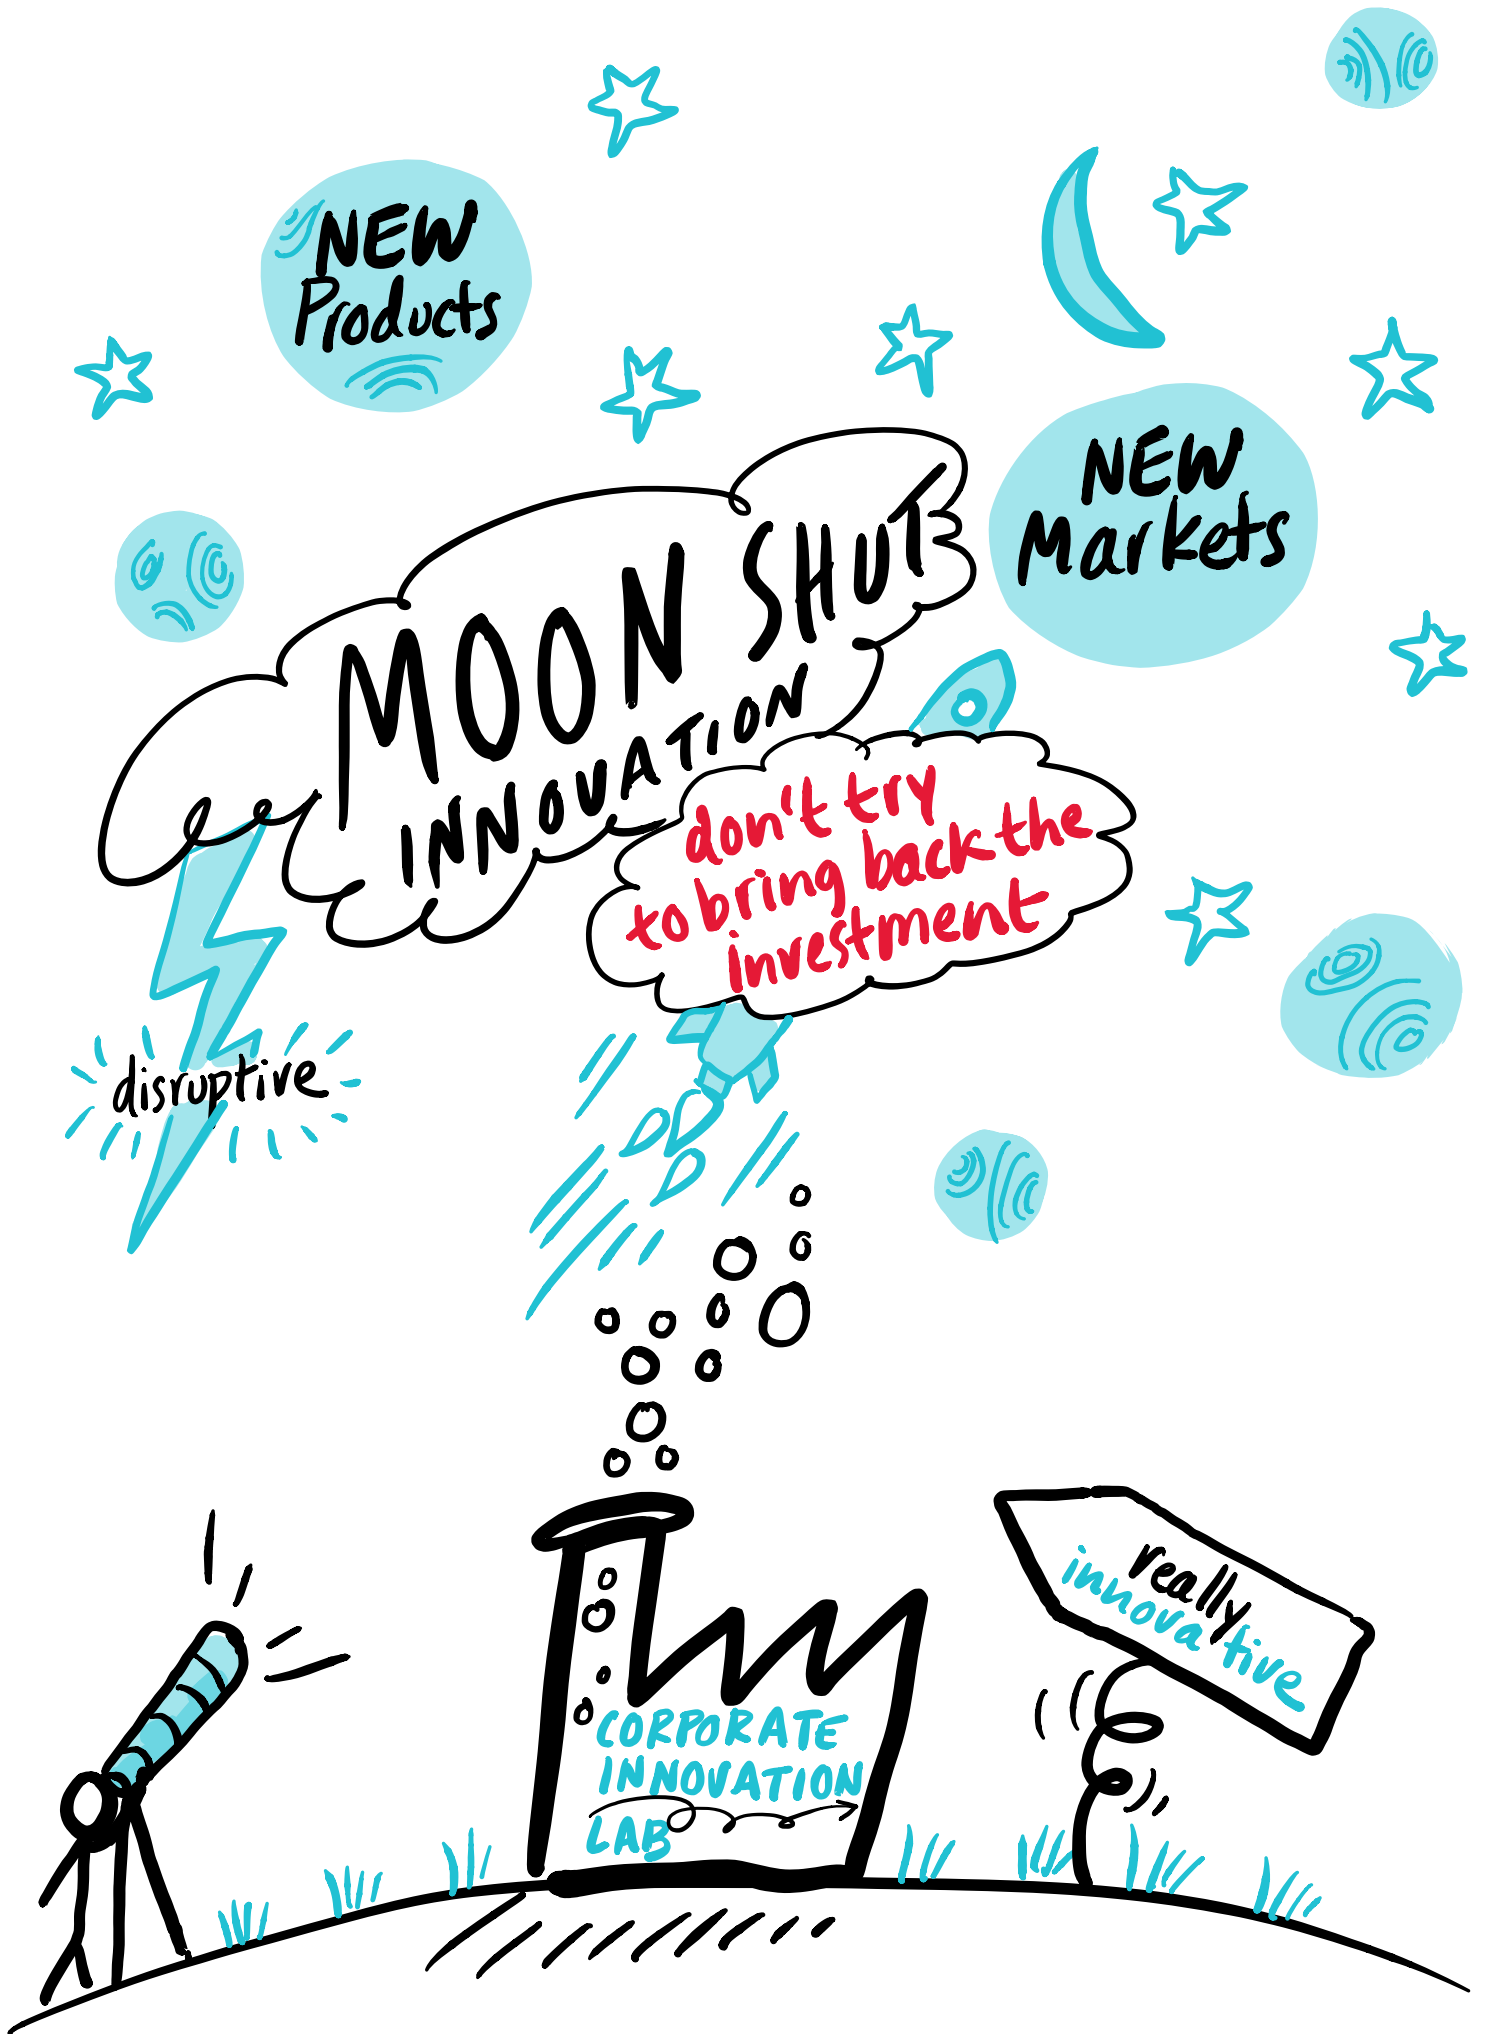 NEW
Products
NEW
Markets
MOON SHUT
INNOVATION
don't try
to bring back the
investment
disruptive
really
innovative
CORPORATE
INNOVATION
LAB